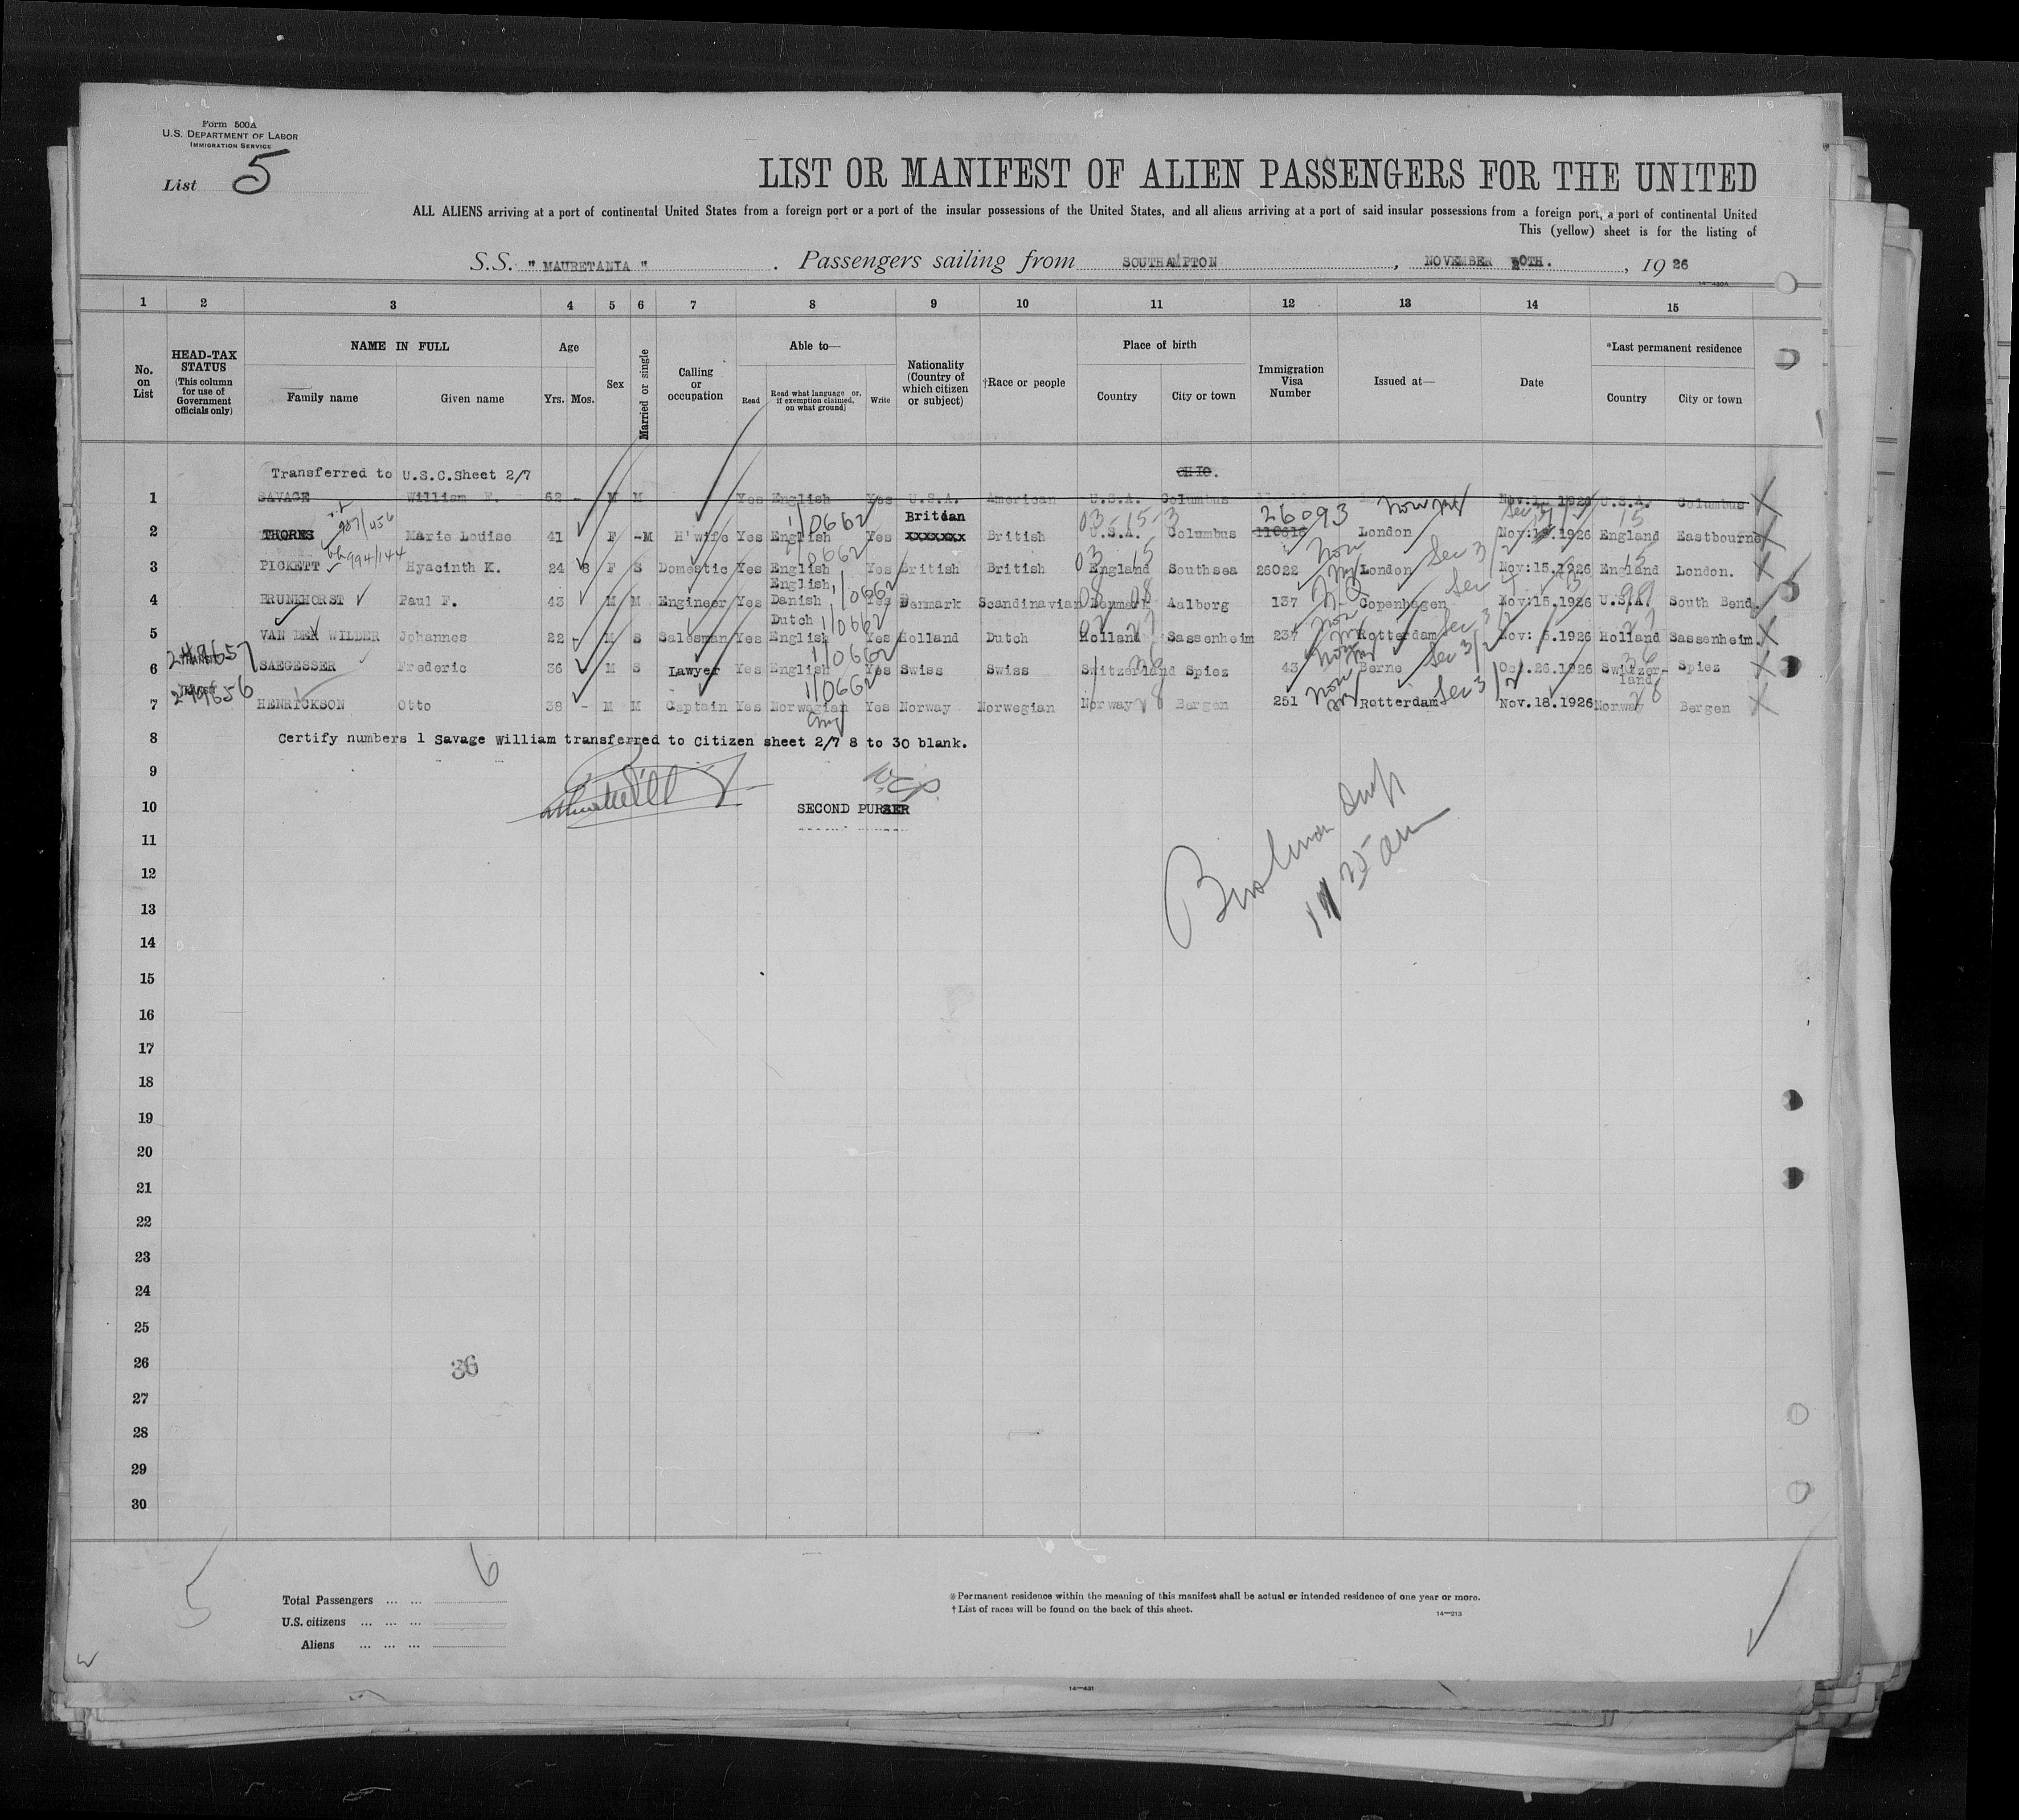 Form 500A
U.S. DEPARTMENT OF LABOR
IMMIGRATION SERVICE
List 5
LIST OR MANIFEST OF ALIEN PASSENGERS FOR THE UNITED
ALL ALIENS arriving at a port of continental United States from a foreign port or a port of the insular possessions of the United States, and all aliens arriving at a port of said insular possessions from a foreign port, a port of continental United
This (yellow) sheet is for the listing of
S.S. " MAURETANIA ". Passengers sailing from SOUTHAMPTON, NOVEMBER 20TH., 19 26
14—430A
1 2 3 4 5 6 7 8 9 10 11 12 13 14 15
No. on List
HEAD-TAX STATUS (This column for use of Government officials only)
NAME IN FULL
Family name Given name
Age
Yrs. Mos.
Sex
Married or single
Calling or occupation
Able to—
Read Read what language or, if exemption claimed, on what ground) Write
Nationality (Country of which citizen or subject)
†Race or people
Place of birth
Country City or town
Immigration Visa Number
Issued at—
Date
*Last permanent residence
Country City or town
Transferred to U.S.C.Sheet 2/7 OHIO.
1 SAVAGE William F. 62 - M M Yes English Yes U.S.A. American U.S.A. Columbus U.S.A. Columbus
1/0662 Britian 03-15-3 26093
2 THORNS 987/456 Marie Louise 41 F -M H'wife Yes English Yes xxxxxxx British U.S.A. Columbus London 1926 England Eastbourne
3 PICKETT 994/144 Hyacinth K. 24 8 F S Domestic Yes English Yes British British England Southsea 26022 London Sec 3/2 Nov:15.1926 England London.
English 1/0662
4 BRUNKHORST Paul F. 43 M M Engineer Yes Danish Yes Denmark Scandinavian Denmark Aalborg 137 Copenhagen Sec 4 Nov:15.1926 U.S.A. South Bend.
Dutch 1/0662
5 VAN DER WILDER Johannes 22 - M S Salesman Yes English Yes Holland Dutch Holland Sassenheim 237 Rotterdam Sec 3/2 Nov: 5.1926 Holland Sassenheim.
TRANSIT 1/0662
6 SAEGESSER Frederic 36 M S Lawyer Yes English Yes Swiss Swiss Switzerland Spiez 43 Berne Sec 3/2 Oct.26.1926 Switzer-land Spiez
249656 1/0662
7 HENRICKSON Otto 38 - M M Captain Yes Norwegian Yes Norway Norwegian Norway Bergen 251 Rotterdam Sec 3/2 Nov.18.1926 Norway Bergen
Eng
8 Certify numbers 1 Savage William transferred to Citizen sheet 2/7 8 to 30 blank.
9
10 SECOND PURSER
11
12
13
14
15
16
17
18
19
20
21
22
23
24
25
26 36
27
28
29
30
5 6
Total Passengers ... ...
U.S. citizens ... ... ...
Aliens ... ... ...
*Permanent residence within the meaning of this manifest shall be actual or intended residence of one year or more.
†List of races will be found on the back of this sheet.
14—213
14—431